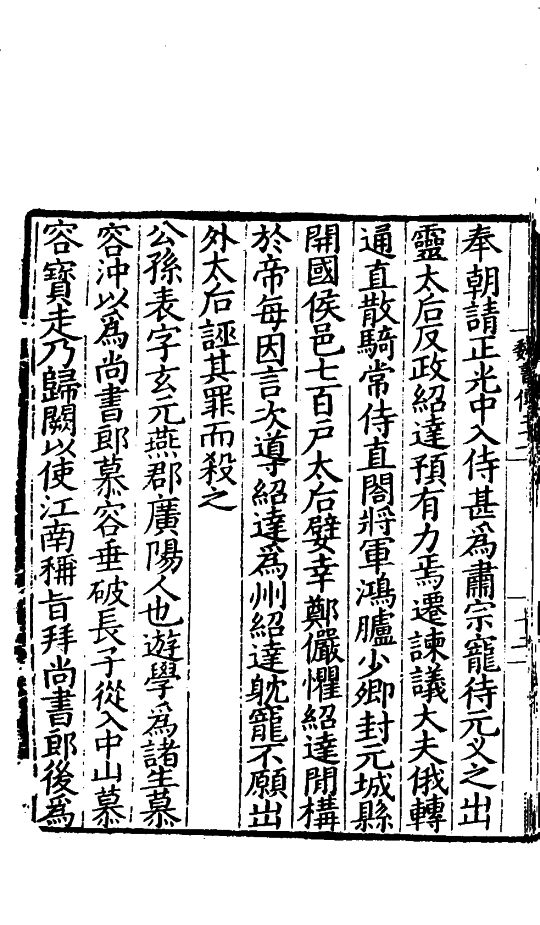 魏書傳二十一
十二
奉朝請正光中入侍甚爲肅宗寵待元义之出
靈太后反政紹達預有力焉遷諫議大夫俄轉
通直散騎常侍直閤將軍鴻臚少卿封元城縣
開國侯邑七百户太后嬖幸鄭儼懼紹達間構
於帝每因言次導紹達爲州紹達躭寵不願出
外太后誣其罪而殺之
公孫表字玄元燕郡廣陽人也遊學爲諸生慕
容沖以爲尚書郎慕容垂破長子從入中山慕
容寶走乃歸闕以使江南稱旨拜尚書郎後爲